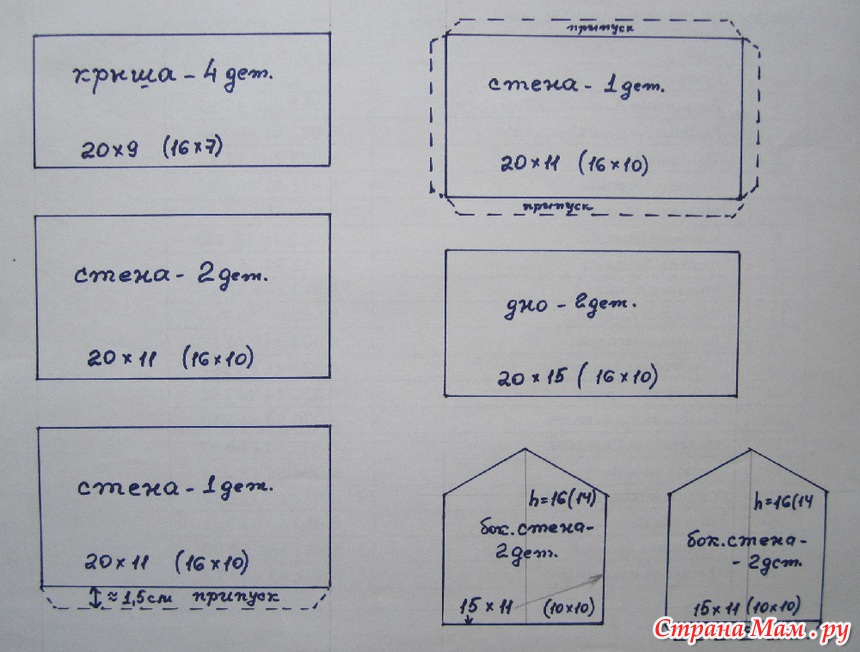 крыша - 4 дет.
20×9 (16×7)
стена - 2 дет.
20×11 (16×10)
стена - 1 дет.
20×11 (16×10)
≈1,5см припуск
припуск
стена - 1 дет.
20×11 (16×10)
припуск
дно - 2 дет.
20×15 (16×10)
h=16(14)
бок.стена-
2 дет.
15×11 (10×10)
h=16(14
бок.стена-
- 2 дет.
15×11 (10×10)
СтранаМам.ру